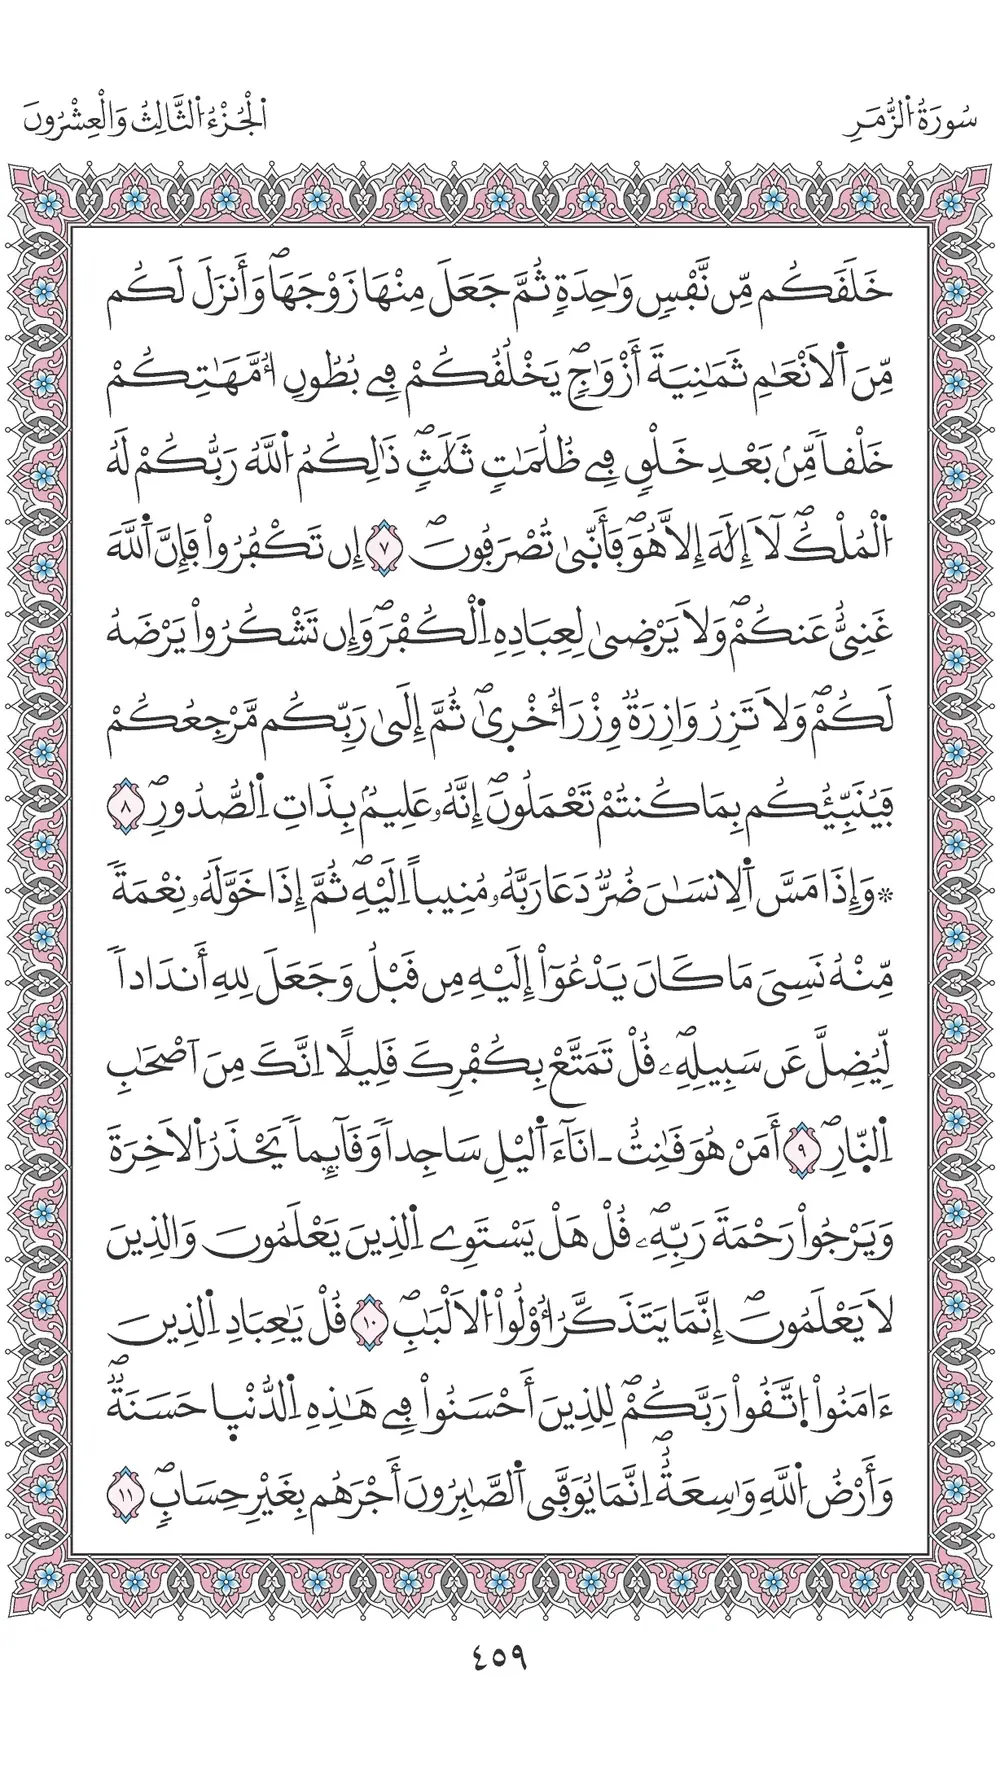 سُورَةُ اُ۬لزُّمَرِ
اَ۬لْجُزْءُ اُ۬لثَّالِثُ وَالْعِشْرُونَ
خَلَقَكُم مِّن نَّفْسٖ وَٰحِدَةٖ ثُمَّ جَعَلَ مِنْهَا زَوْجَهَاۖ وَأَنزَلَ لَكُم
مِّنَ اَ۬لَانْعَٰمِ ثَمَٰنِيَةَ أَزْوَٰجٖۖ يَخْلُقُكُمْ فِے بُطُونِ أُمَّهَٰتِكُمْ
خَلْقاٗ مِّنۢ بَعْدِ خَلْقٖ فِے ظُلُمَٰتٖ ثَلَٰثٖۖ ذَٰلِكُمُ اُ۬للَّهُ رَبُّكُمْ لَهُ
اُ۬لْمُلْكُۖ لَآ إِلَٰهَ إِلَّا هُوَۖ فَأَنّ۪يٰ تُصْرَفُونَۖ ٧ إِن تَكْفُرُواْ فَإِنَّ اَ۬للَّهَ
غَنِيٌّ عَنكُمْۖ وَلَا يَرْضَيٰ لِعِبَادِهِ اِ۬لْكُفْرَۖ وَإِن تَشْكُرُواْ يَرْضَهُ
لَكُمْۖ وَلَا تَزِرُ وَازِرَةٞ وِزْرَ أُخْر۪يٰۖ ثُمَّ إِلَيٰ رَبِّكُم مَّرْجِعُكُمْ
فَيُنَبِّئُكُم بِمَا كُنتُمْ تَعْمَلُونَۖ إِنَّهُۥ عَلِيمُۢ بِذَاتِ اِ۬لصُّدُورِۖ ٨
۞وَإِذَا مَسَّ اَ۬لِانسَٰنَ ضُرّٞ دَعَا رَبَّهُۥ مُنِيباً اِلَيْهِۖ ثُمَّ إِذَا خَوَّلَهُۥ نِعْمَةٗ
مِّنْهُ نَسِيَ مَا كَانَ يَدْعُوٓاْ إِلَيْهِ مِن قَبْلُ وَجَعَلَ لِلهِ أَندَاداٗ
لِّيُضِلَّ عَن سَبِيلِهِۦۖ قُلْ تَمَتَّعْ بِكُفْرِكَ قَلِيلًا اِنَّكَ مِنَ اَصْحَٰبِ
اِ۬لنّ۪ارِۖ ٩ أَمَنْ هُوَ قَٰنِتٌ ـ انَآءَ اَ۬ليْلِ سَاجِداٗ وَقَآئِماٗ يَحْذَرُ اُ۬لَاخِرَةَ
وَيَرْجُواْ رَحْمَةَ رَبِّهِۦۖ قُلْ هَلْ يَسْتَوِے اِ۬لذِينَ يَعْلَمُونَ وَالذِينَ
لَا يَعْلَمُونَۖ إِنَّمَا يَتَذَكَّرُ أُوْلُواْ اُ۬لَالْبَٰبِۖ ١٠ قُلْ يَٰعِبَادِ اِ۬لذِينَ
ءَامَنُواْ اُ۪تَّقُواْ رَبَّكُمْۖ لِلذِينَ أَحْسَنُواْ فِے هَٰذِهِ اِ۬لدُّنْي۪ا حَسَنَةٞۖ
وَأَرْضُ اُ۬للَّهِ وَٰسِعَةٌۖ اِنَّمَا يُوَفَّي اَ۬لصَّٰبِرُونَ أَجْرَهُم بِغَيْرِ حِسَابٖۖ ١١
٤٥٩